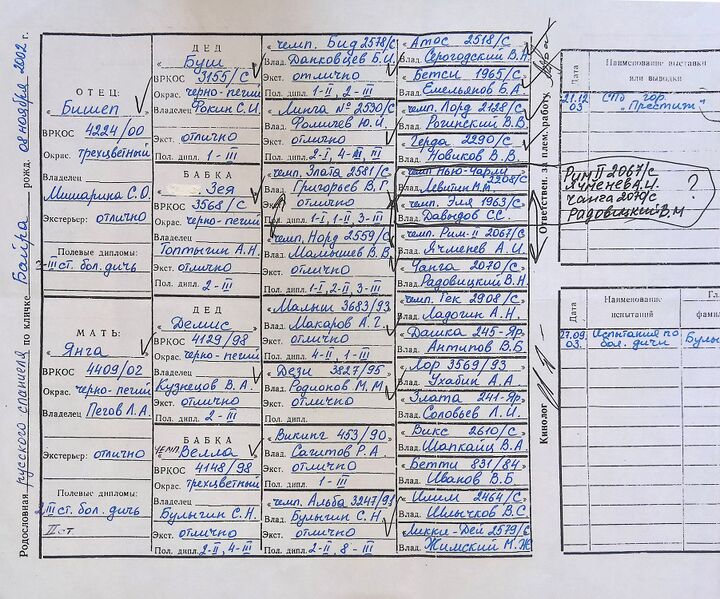 Родословная русского спаниеля по кличке Байра рожд. 08 ноября 2002 г.
ОТЕЦ:
«Бишеп»
ВРКОС 4224/00
Окрас. трехцветный
Владелец
Мишарина С.О.
Экстерьер: отлично
Полевые дипломы:
3-III ст. бол. дичь
МАТЬ:
«Янга
ВРКОС 4409/02
Окрас. черно-пегий
Владелец
Пегов Л.А.
Экстерьер: отлично
Полевые дипломы:
ст. бол. дичь
ДЕД
«Буш
ВРКОС 3155/С
Окрас. черно-пегий
Владелец
Фокин С.И.
Экст. отлично
Пол. дипл. 1-III
БАБКА
«Зея
ВРКОС 3568/С
Окрас. черно-пегий
Владелец
Топтыгин А.Н.
Экст. отлично
Пол. дипл. 2-III
ДЕД
«Демис
ВРКОС 4129/98
Окрас. черно-пегий
Владелец
Кузнецов В.А.
Экст. отлично
Пол. дипл. 2-III
БАБКА
чемп. Велла
ВРКОС 4148/98
Окрас. трехцветный
Владелец
Булыгин С.Н.
Экст. отлично
Пол. дипл. 2-II, 4-III
«чемп. Бид 2578/С
Влад. Данковцев Б.И.
Экст. отлично
Пол. дипл. 1-II, 2-III
«Линга № 2530/С
Влад. Фомичев Ю.И.
Экст. отлично
Пол. дипл. 2-I, 4-II, III
«чемп. Злата 2581/С
Влад. Григорьев В.Г.
Экст. отлично
Пол. дипл. 1-I, 1-II, 3-III
«чемп. Норд 2559/С
Влад. Мамышев В.В.
Экст. отлично
Пол. дипл. 1-II, 2-II, 3-III
«Малыш 3683/93
Влад. Макаров А.Г.
Экст. отлично
Пол. дипл. 4-II, 1-III
«Дези 3827/95
Влад. Родионов М.М.
Экст. отлично
Пол. дипл.
«Викинг 453/90
Влад. Сагитов Р.А.
Экст. отлично
Пол. дипл. 1-III
«чемп. Альба 3247/91
Влад. Булыгин С.Н.
Экст. отлично
Пол. дипл. 2-II, 8-III
«Атос 2518/С
Влад. Серогодский В.Н.
«Бетси 1965/С
Влад. Емельянов Б.А.
«чемп. Лорд 2128/С
Влад. Рогинский В.В.
«Герда 2290/С
Влад. Новиков В.В.
«чемп Нью-Чарли
Влад. Левитин М.М. 2208/С
«чемп. Эля 1963/С
Влад. Давыдов С.С.
«чемп. Рим-II 2067/С
Влад. Ячменев А.И.
«Чанга 2070/С
Влад. Радовицкий В.Н.
«чемп. Гек 2908/С
Влад. Ладогин А.Н.
«Дашка 245-Яр.
Влад. Антипов В.Б.
«Лор 3569/93
Влад. Ухабин А.А.
«Злата 241-Яр.
Влад. Соловьев Л.И.
«Викс 2610/С
Влад. Шапкайц В.А.
«Бетти 831/84
Влад. Иванов В.Б.
«Илим 2464/С
Влад. Ильичков В.С.
«Ликки-Дей 2579/С
Влад. Жимский М.Ж
Ответствен. за плем. работу
Кинолог
Дата
Наименование выставки
или выводки
21.12
03
СПб гор.
"Престиж"
Рим II 2067/С
Ячменев А.И.
Чанга 2070/С
Радовицкий В.Н
?
Дата
Наименование
испытаний
Гл
фамил
27.09
03.
Испытания по
бол. дичи
Булы